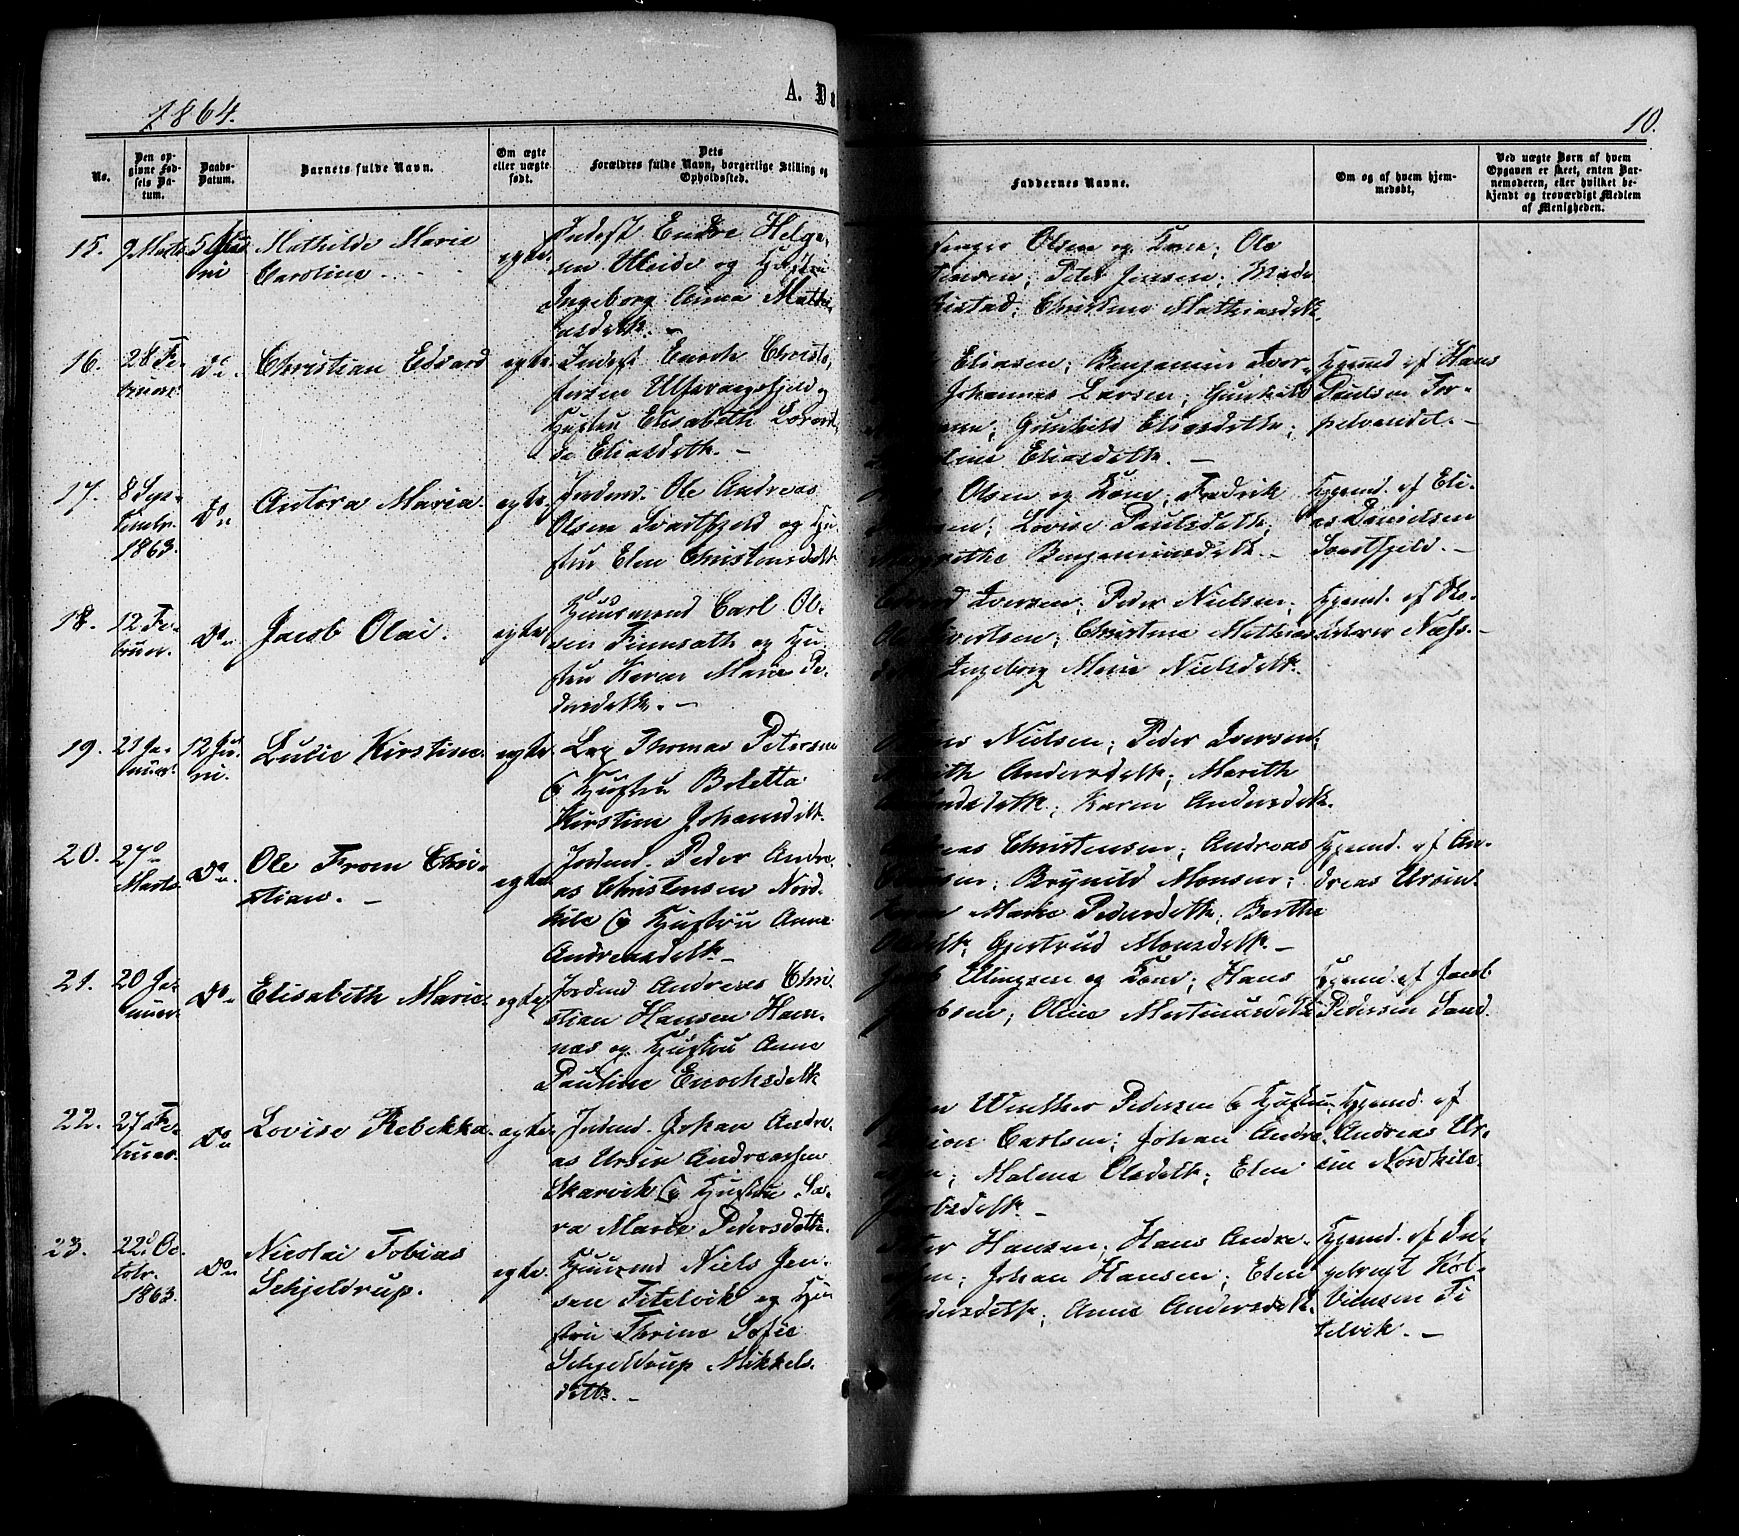 1864.
A. Dø
10.
No.
Den op-
givne Fød-
sels Da-
tum.
Daabs-
Datum.
Barnets fulde Navn.
Om ægte
eller uægte
født.
Dets
Forældres fulde Navn, borgerlige Stilling og
Opholdssted.
Faddernes Navne.
Om og af hvem hjem-
medøbt,
Ved uægte Børn af hvem
Opgaven er skeet, enten Bar-
nemoderen, eller hvilket be-
kjendt og troværdigt Medlem
af Menigheden.
15. 9 Marts 5 Juni Mathilde Marie
Caroline. egte. Indest Endre Helge-
sen Uteide og Hustru
Ingeborg Anna Mathi-
asdatt. —
Olsen og Kone; Ole
Peter Jensen;
Christine Mathiasdatt.
16. 28 Fe-
bruar. Do. Christian Edvard egte. Indest Enoch Christo-
fersen Ulfsvaagfjeld og
Hustru Elisabeth
Eliasdatt. —
Eliasen; Benjamin Ivar-
Johannes Larsen; Gunhild
Gunhild Eliasdatt;
Eliasdatt. —
Hjemd. af Hans
Paulsen
17. 8 Sep-
tembr.
1863. Do. Antora Maria. egte. Jordmd. Ole Andreas
Olsen Svartfjeld og Hu-
stru Elen Christensdatt.
Olsen og Kone; Fredrik
Lovise Paulsdatt;
Benjaminsdatt. —
Hjemd. af Eli-
as Danielsen
Svartfjeld. —
18. 12 Fe-
bruar. Do. Jacob Olai. egte. Huusmand Carl Ol-
sen Finnsæth og Hu-
stru Karen Marie Pe-
dersdatt. —
Iversen; Peder Nielsen;
Christine Mathias
Ingeborg Marie Nielsdatt.
Hjemd. af
Næss. —
19. 21 Ja-
nuar. 12 Ju-
ni. Lucie Kirstine. egte. Thomas Petersen
& Hustru Boletta
Kirstine Johansdatt.
Nielsen; Peder Iversen;
Andersdatt; Marith
Karen Andersdatt.
20. 27de
Marts Do. Ole From Chri-
stian. — egte. Jordmd. Peder Andre-
as Christensen Nord-
kile & Hustru Anne
Andreasdatt. —
Christensen; Andreas
Brynild Monsen;
Marie Pedersdatt; Berthe
Gjertrud Monsdatt. —
Hjemd. af An-
dreas Ursin.
21. 20 Ja-
nuar. Do. Elisabeth Marie. egte. Jordmd Andreas Chri-
stian Hansen Ham-
næs og Hustru Anne
Pauline Enochsdatt
Elingsen og Kone; Hans
Oline Martinusdatt
Hjemd. af Jacob
Pedersen Sand.
22. 27 Fe-
bruar. Do. Lovise Rebekka. egte. Indmd. Johan Andre-
as Ursin Andreassen
Skarvik & Hustru Sa-
ra Marie Pedersdatt.
Winther Pedersen & Hustru
Carlsen; Johan Andre-
Malene Olsdatt; Elen
Jacobsdatt. —
Hjemd. af
Andreas Ur-
sin Nordkile.
23. 22de Oc-
tobr.
1863. Do. Nicolai Tobias
Schjeldrup. egte. Huusmd Niels Jen-
sen Fitelvik og Hu-
stru Thrine Sofie
Schjeldrup Mikkels-
datt. —
Hansen; Hans Andre-
Johan Hansen; Elen
Pedersdatt; Anne Andersdatt.
Hjemd. af In-
gebrigt Kol-
Fi-
telvik. —